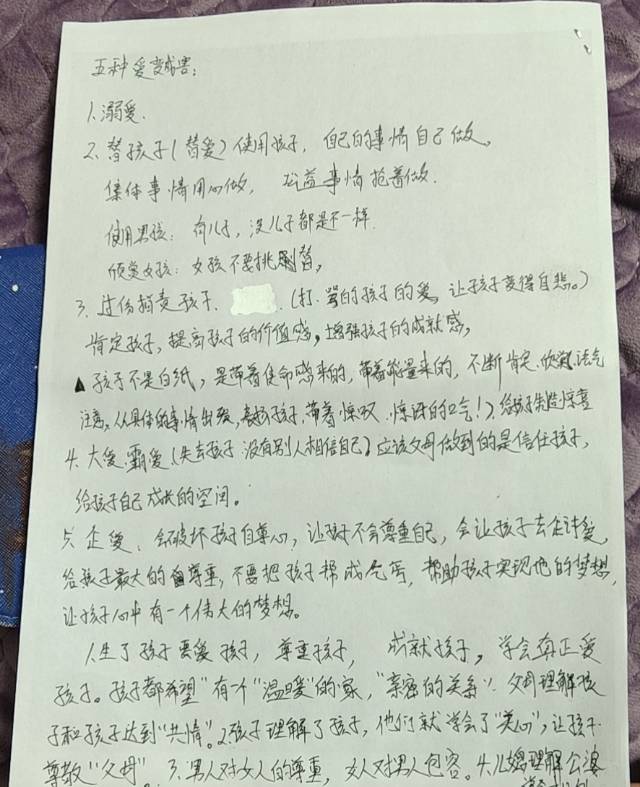 五种爱变成害：
1.溺爱.
2.替孩子（替爱）使用孩子，自己的事情自己做。
集体事情用心做，公益事情抢着做.
使用男孩：有儿子，没儿子都是不一样.
欣赏女孩：女孩不要挑剔
3.过份指责孩子.（打.骂的孩子的爱，让孩子变得自悲。）
肯定孩子，提高孩子的价值感，增强孩子的成就感，
▲孩子不是白纸，是带着使命感来的，带着能量来的，不断肯定.欣赏.
注意，从具体的事情出发，表扬孩子，带着惊叹.惊讶的口气！）给孩子制造惊喜
4.大爱.霸爱（失去孩子.没有别人相信自己）应该父母做到的是信任孩子，
给孩子自己成长的空间。
5.企爱、会破坏孩子自尊心，让孩子不会尊重自己，会让孩子去企讨爱，
给孩子最大的尊重，不要把孩子帮成乞丐，帮助孩子实现他的梦想，
让孩子心中有一个伟大的梦想。
1.生了孩子要爱孩子，尊重孩子，成就孩子，学会真正爱
孩子。孩子都希望"有个"温暖"的家，"亲密的关系"父母理解孩
子和孩子达到"共情"。2.孩子理解了孩子，他们就学会了"关心"，让孩子
尊敬"父母"。3.男人对女人的尊重，女人对男人包容。4.儿媳理解公婆